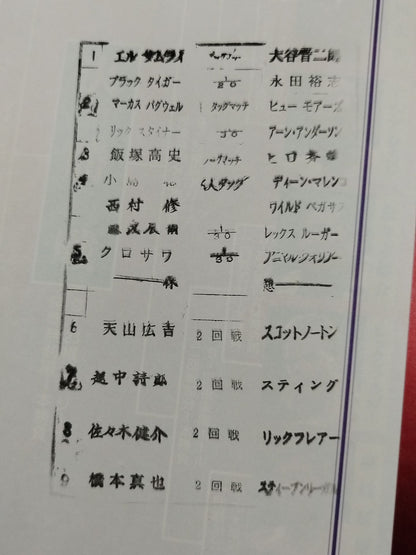 1 エル サムライ タッグマッチ 大谷晋二郎
ブラック タイガー 1/30 永田裕志
2 マーカス バグウェル タッグマッチ ヒュー モアー
リック スタイナー 30 アーン・アンダーソン
3 飯塚高史 タッグマッチ ヒロ
4 小 6人タッグ ディーン・マレン
西村 修 ワイルド ペガサ
辰 1/30 レックス ルーガー
5 クロサワ 1/30 アニマル
休 憩
6 天山広吉 2回戦 スコットノートン
7 越中詩郎 2回戦 スティング
8 佐々木健介 2回戦 リックフレアー
9 橋本真也 2回戦 スティーブン